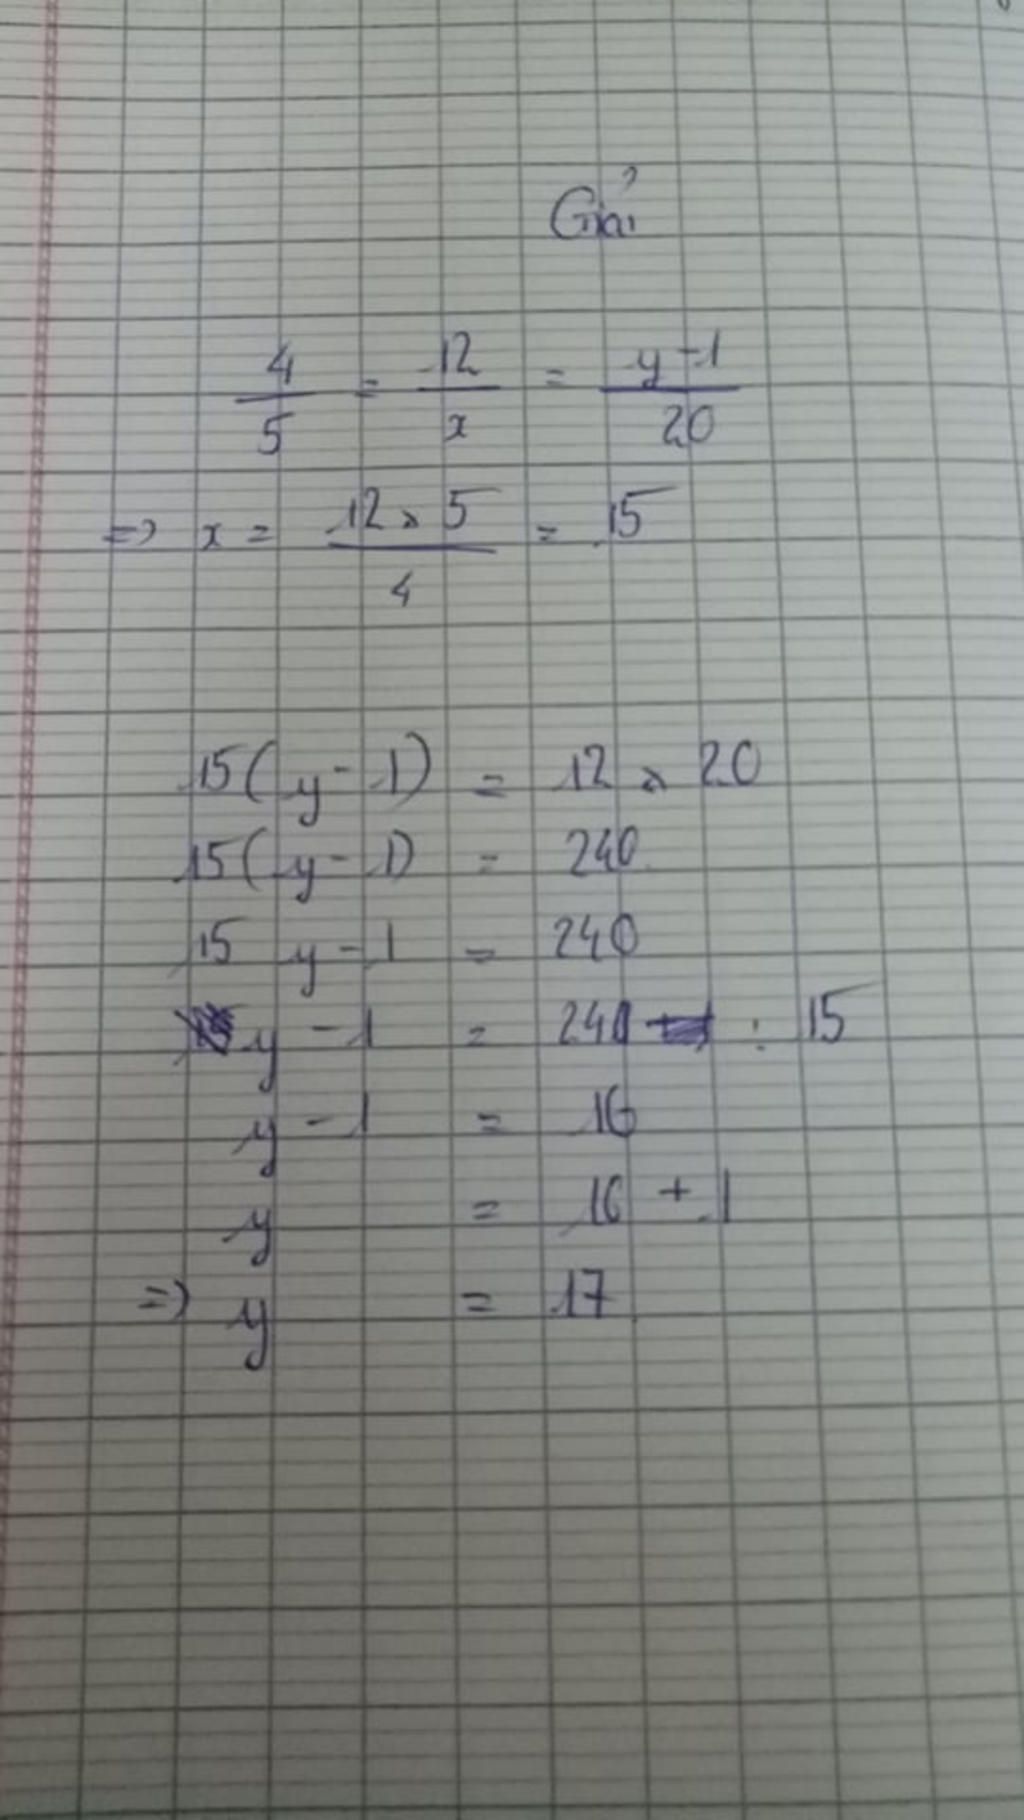 Giải
4/5 = 12/x = y-1/20
=> x = 12 x 5/4 = 15
15(y - 1) = 12 x 20
15(y - 1) = 240
15 y - 1 = 240
y - 1 = 240 : 15
y - 1 = 16
y = 16 + 1
=> y = 17